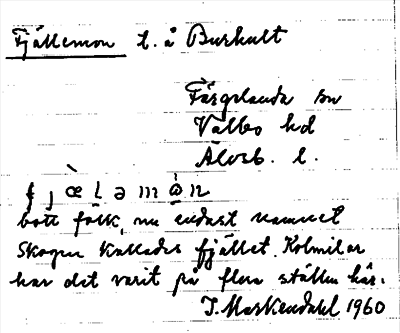 Fjällemon t. å Burhult
Färgelanda sn
Valbo hd
Älvsb. l.
fjœ̀l̠əmὼn
bott folk, nu endast namnet
Skogen kallades fjället. Kolmilar
har det varit på flera ställen här.
J. Markendahl 1960